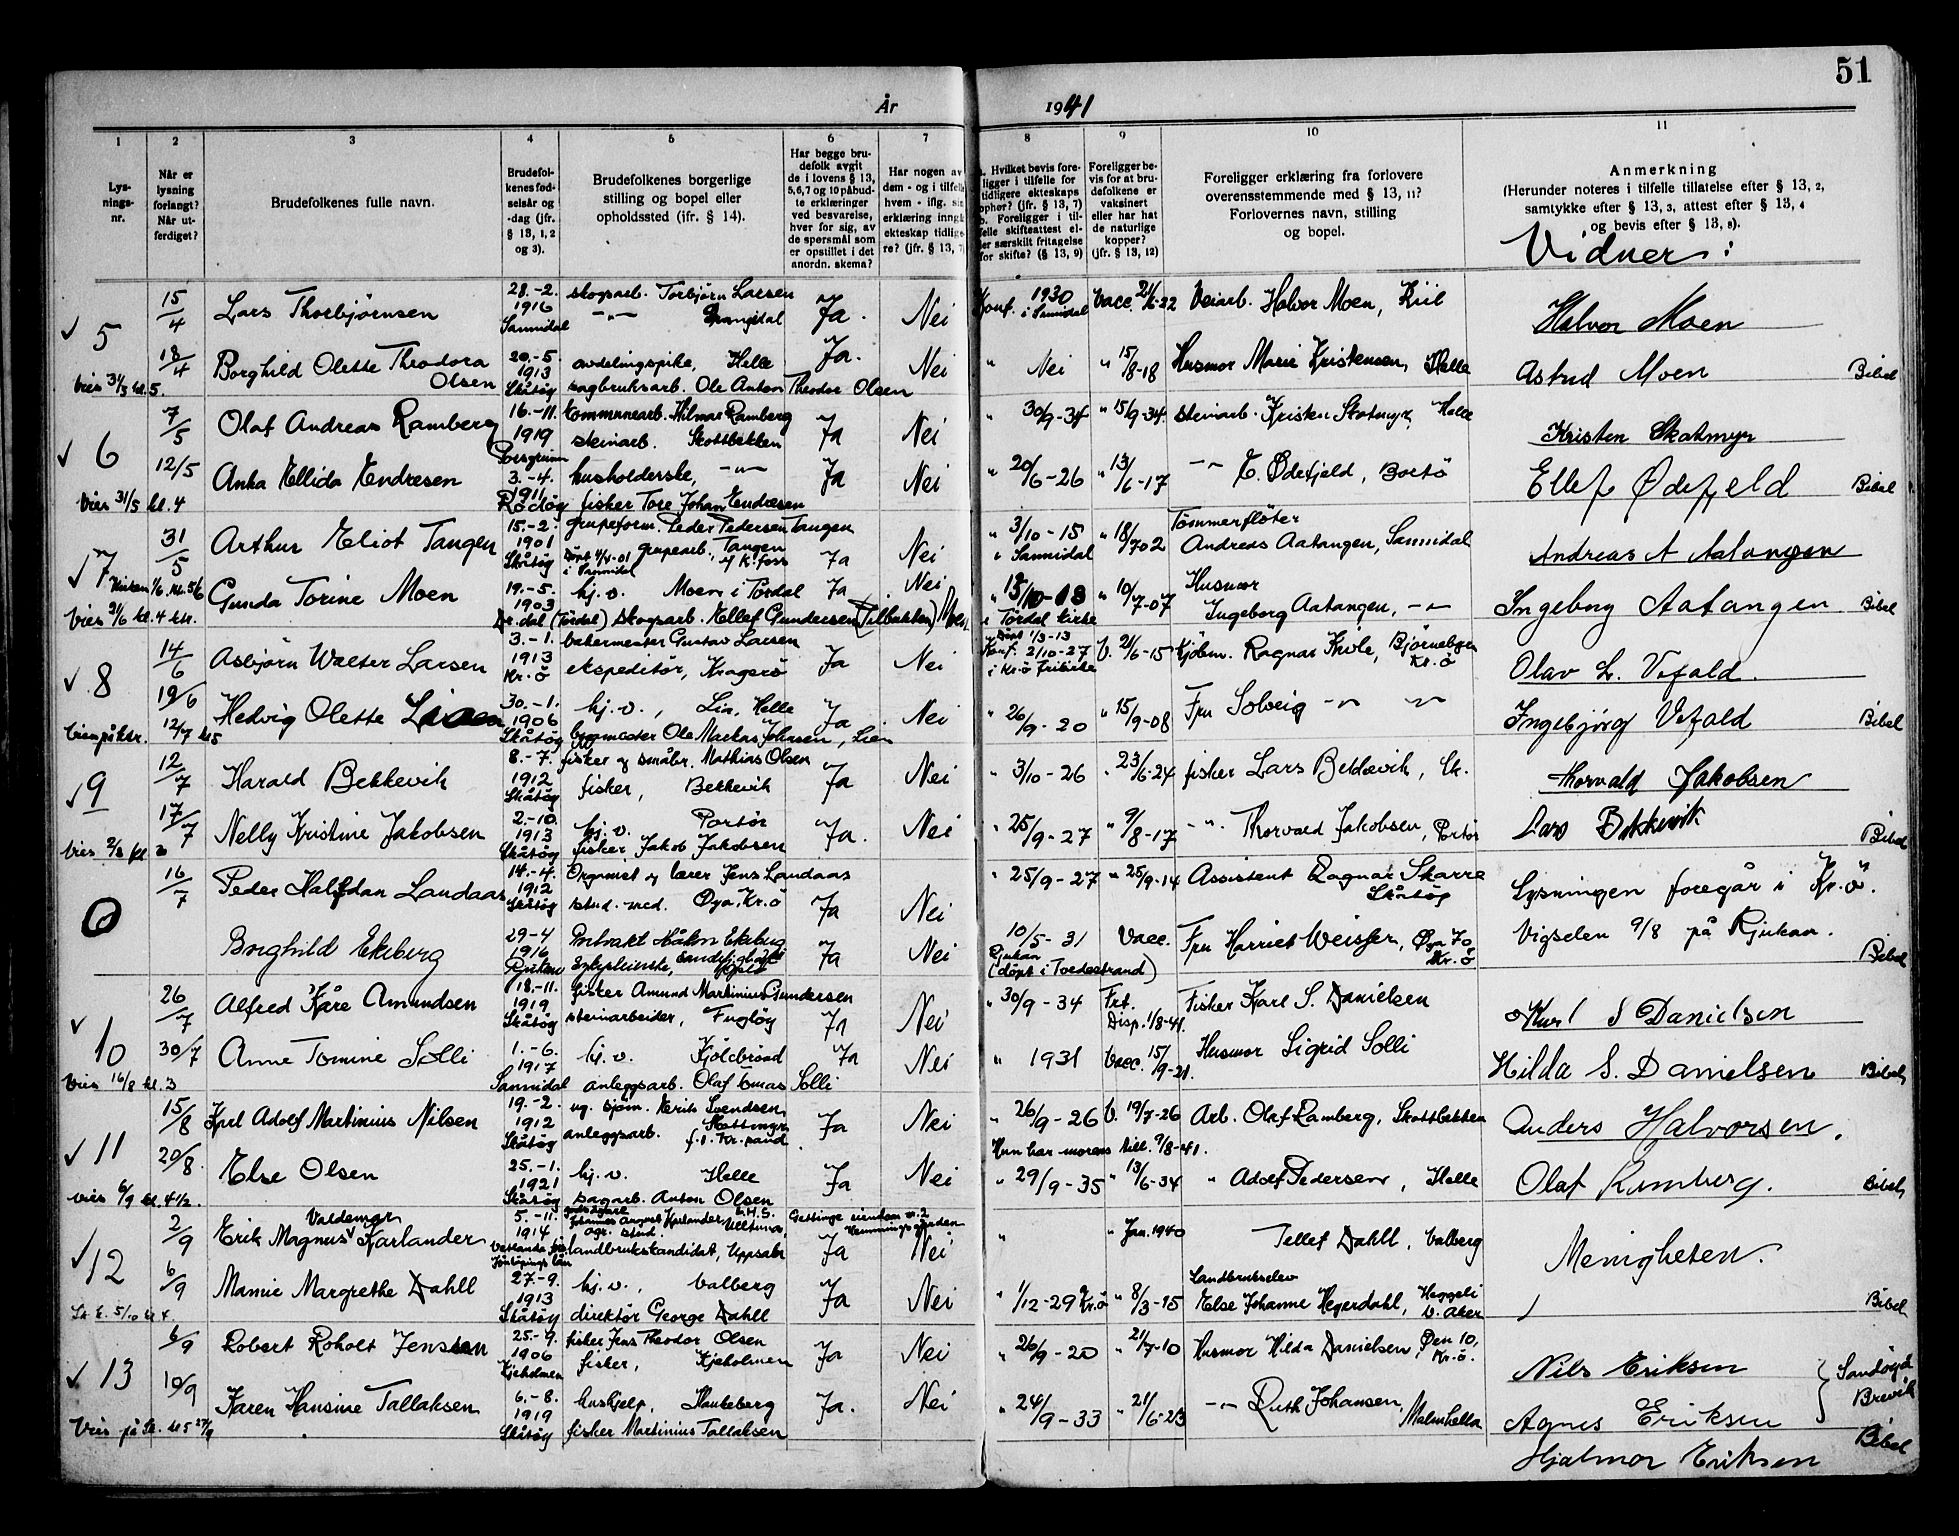 51
År 1941
1 2 3 4 5 6 7 8 9 10 11
Lys-
nings-
nr.
Når er
lysning
forlangt?
Når ut-
ferdiget?
Brudefolkenes fulle navn.
Brudefol-
kenes fød-
selsår og
-dag (jfr.
§ 13, 1, 2
og 3).
Brudefolkenes borgerlige
stilling og bopel eller
opholdssted (ifr. § 14).
Har begge bru-
defolk avgit
de i lovens § 13,
5,6,7 og 10 påbud-
te erklæringer
ved besvarelse,
hver for sig, av
de spørsmål som
er opstillet i det
anordn. skema?
Har nogen av
dem - og i tilfelle
hvem - iflg. sin
erklæring inngå
ekteskap tidlige-
re? (jfr. § 13, 7)
a. Hvilket bevis fore-
ligger i tilfelle for
tidligere ekteskaps
ophør? (jfr. § 13, 7)
b. Foreligger i til-
felle skifteattest el-
ler særskilt fritagelse
for skifte? (§ 13, 9)
Foreligger be-
vis for at bru-
defolkene er
vaksinert
eller har hat
de naturlige
kopper?
(jfr. § 13, 12)
Foreligger erklæring fra forlovere
overensstemmende med § 13, 11?
Forlovernes navn, stilling
og bopel.
Anmerkning
(Herunder noteres i tilfelle tillatelse efter § 13, 2,
samtykke efter § 13, 3, attest efter § 13, 4
og bevis efter § 13, 8).
Vidner:
5 15/4 Lars Thorbjørnsen 28.-2. 1916 Sannidal skogsarb. Torbjørn Larsen Ja. Nei Konf. 1930 i Sannidal Vacc. 21/6-22 Veiarb. Halvor Moen, Kiil Halvor Moen
18/4 Borghild Olette Theodora Olsen 20.-5. 1913 Skåtøy avdelingspike, Helle Ja. Nei " Nei " 15/8-18 Husmor Marie Kristensen, Helle Astrid Moen Bibel
Vies 31/5 kl. 5. sagbruksarb. Ole Anton Theodor Olsen
6 7/5 Olaf Andreas Ramberg 16.-11. 1919 Porsgrunn kommunearb. Hilmar Ramberg
steinarb. Skottbekken Ja Nei " 30/9-34 " 15/9-34 steinarb. Kristen Skotmyr, Helle Kristen Skotmyr
12/5 Anna Ellida Endresen 3.-4. 1911 husholderske, -"- Ja Nei " 20/6-26 " 13/6-17 -"- E. Ødefjeld, Portø Ellef Ødefjeld Bibel
Vies 31/5 kl. 4 fisker Tore Johan Endresen
7 31/5 Arthur Eliot Tangen 15.-2. 1901 Skåtøy grubeform. Peder Pedersen Tangen
grubearb., Tangen Ja Nei " 3/10-15 " Sannidal " 18/7 02 Tømmerfløter
Andreas Aatangen, Sannidal Andreas A Aatangen
Gunda Torine Moen 19.-5. 1903 hj. v. Moen i Tørdal Ja Nei i Tørdal kirke " 10/7-07 Husmor
Ingeborg Aatangen, -"- Ingeborg Aatangen Bibel
Vies 21/6 kl. 4 (Tørdal) skogsarb. Ellef Gundersen
8 14/6 Asbjørn Walter Larsen 3.-1. 1913 Kr.ø bakermester Gustav Larsen
ekspeditør, Kragerø Ja Nei Døpt 1/3-13
Konf. 2/10-27
i Kr.ø frikirke V. 21/6-15 Kjøbm. Ragnar Kivle, Bjørnebyen Kr.ø Olav L. Vefald.
19/6 Hedvig Olette Lien 30.-1. 1906 Skåtøy hj. v., Lia, Helle Ja Nei " 26/9-20 " 15/9-08 Fru Solveig -"- -"- Ingebjørg Vefald Bibel
12/7 kl. 5 bygmester Ole Markus Johnsen, Lien
9 12/7 Harald Bekkevik 8.-7. 1912 Skåtøy fisker og småbr. Mathias Olsen
fisker, Bekkevik Ja Nei " 3/10-26 " 23/6-24 fisker Lars Bekkevik, Sk. Thorvald Jakobsen
17/7 Nelly Kristine Jakobsen 2.-10. 1913 Skåtøy hj. v. Portør Ja. Nei " 25/9-27 " 9/8-17 -"- Thorvald Jakobsen, Portør Lars Bekkevik Bibel
Vies 2/8 kl 3 fisker Jakob Jakobsen
0 16/7 Peder Halfdan Landaas 14.-4. 1912 Skåtøy Organist og lærer Jens Landaas
stud. med. Øya, Kr.ø Ja Nei " 25/9-27 " 25/9-14 Assistent Ragnar Skarre
Skåtøy Lysningen foregår i Kr.ø.
Borghild Ekeberg 29-4 1916 Rjukan Ja Nei 10/5-31 Rjukan
(døpt i Tvedestrand) Vacc. Fru Harriet Weisser, Øya 70 Kr.ø Vigselen 9/8 på Rjukan. Bibel
10 26/7 Alfred Kåre Amundsen 18.-11. 1919 Skåtøy fisker Amund Martinius Gundersen
steinarbeider, Fugløy Ja Nei " 30/9-34 Frt.
Disp. 1/8-41. Fisker Karl S. Danielsen Karl S Danielsen
30/7 Anne Tomine Solli 1.-6. 1917 Sannidal hj. v. Kjølebrønd Ja Nei " 1931 Vacc. 15/9-21. Husmor Sigrid Solli Hilda S. Danielsen Bibel
Vies 16/8 kl. 3 anleggsarb. Olaf Tomas Solli
11 15/8 Karl Adolf Martinius Nilsen 19.-2. 1912 Skåtøy Erik Svendsen,
anleggsarb. f.t. Kr.sand Ja Nei " 26/9-26 V. 19/7-26 Arb. Olaf Ramberg, Skottbekken Anders Halvorsen.
Hun har morens till. 9/8-41.
20/8. Else Olsen 25.-1. 1921 Skåtøy hj. v. Helle Ja Nei " 29/9-35 " 13/6-34 " Adolf Pedersen, Helle Olaf Ramberg. Bibel
Vies 6/9 kl. 4 1/2. sagarb. Anton Olsen
12 2/9 Erik Magnus Valdemar Karlander 5.-11. 1914 Johannes August Karlander
landbrukskandidat, Uppsala Ja Nei " " Jan. 1940 Tellef Dahll, Valberg Menigheten.
6/9 Mamie Margrethe Dahll 27.-9. 1913 Skåtøy hj. v., Valberg Ja Nei " 1/12-29 Kr.ø " 8/3-15 Landbrukselev
Else Johanne Hegerdahl, Heggeli
V. Aker Bibel
5/10 kl 4 direktør George Dahll
13 6/9 Robert Roholt Jenssen 25.-9. 1906 Kjeholmen fisker Jens Theodor Olsen
fisker, Kjeholmen Ja Nei " 26/9-20 " 21/7-10 Husmor Hilda Danielsen, Øen 10, Kr.ø. Nils Eriksen Sandøya
Brevik
10/9 Karen Hansine Tallaksen 6.-8. 1919 Skåtøy hushjelp, Haukeberg Ja. Nei " 24/9-33 " 21/6-23 -"- Ruth Johansen, Malmhella Agnes Eriksen
Vies på Sk. kl 5 27/9 fisker Martinius Tallaksen Hjalmar Eriksen Bibel